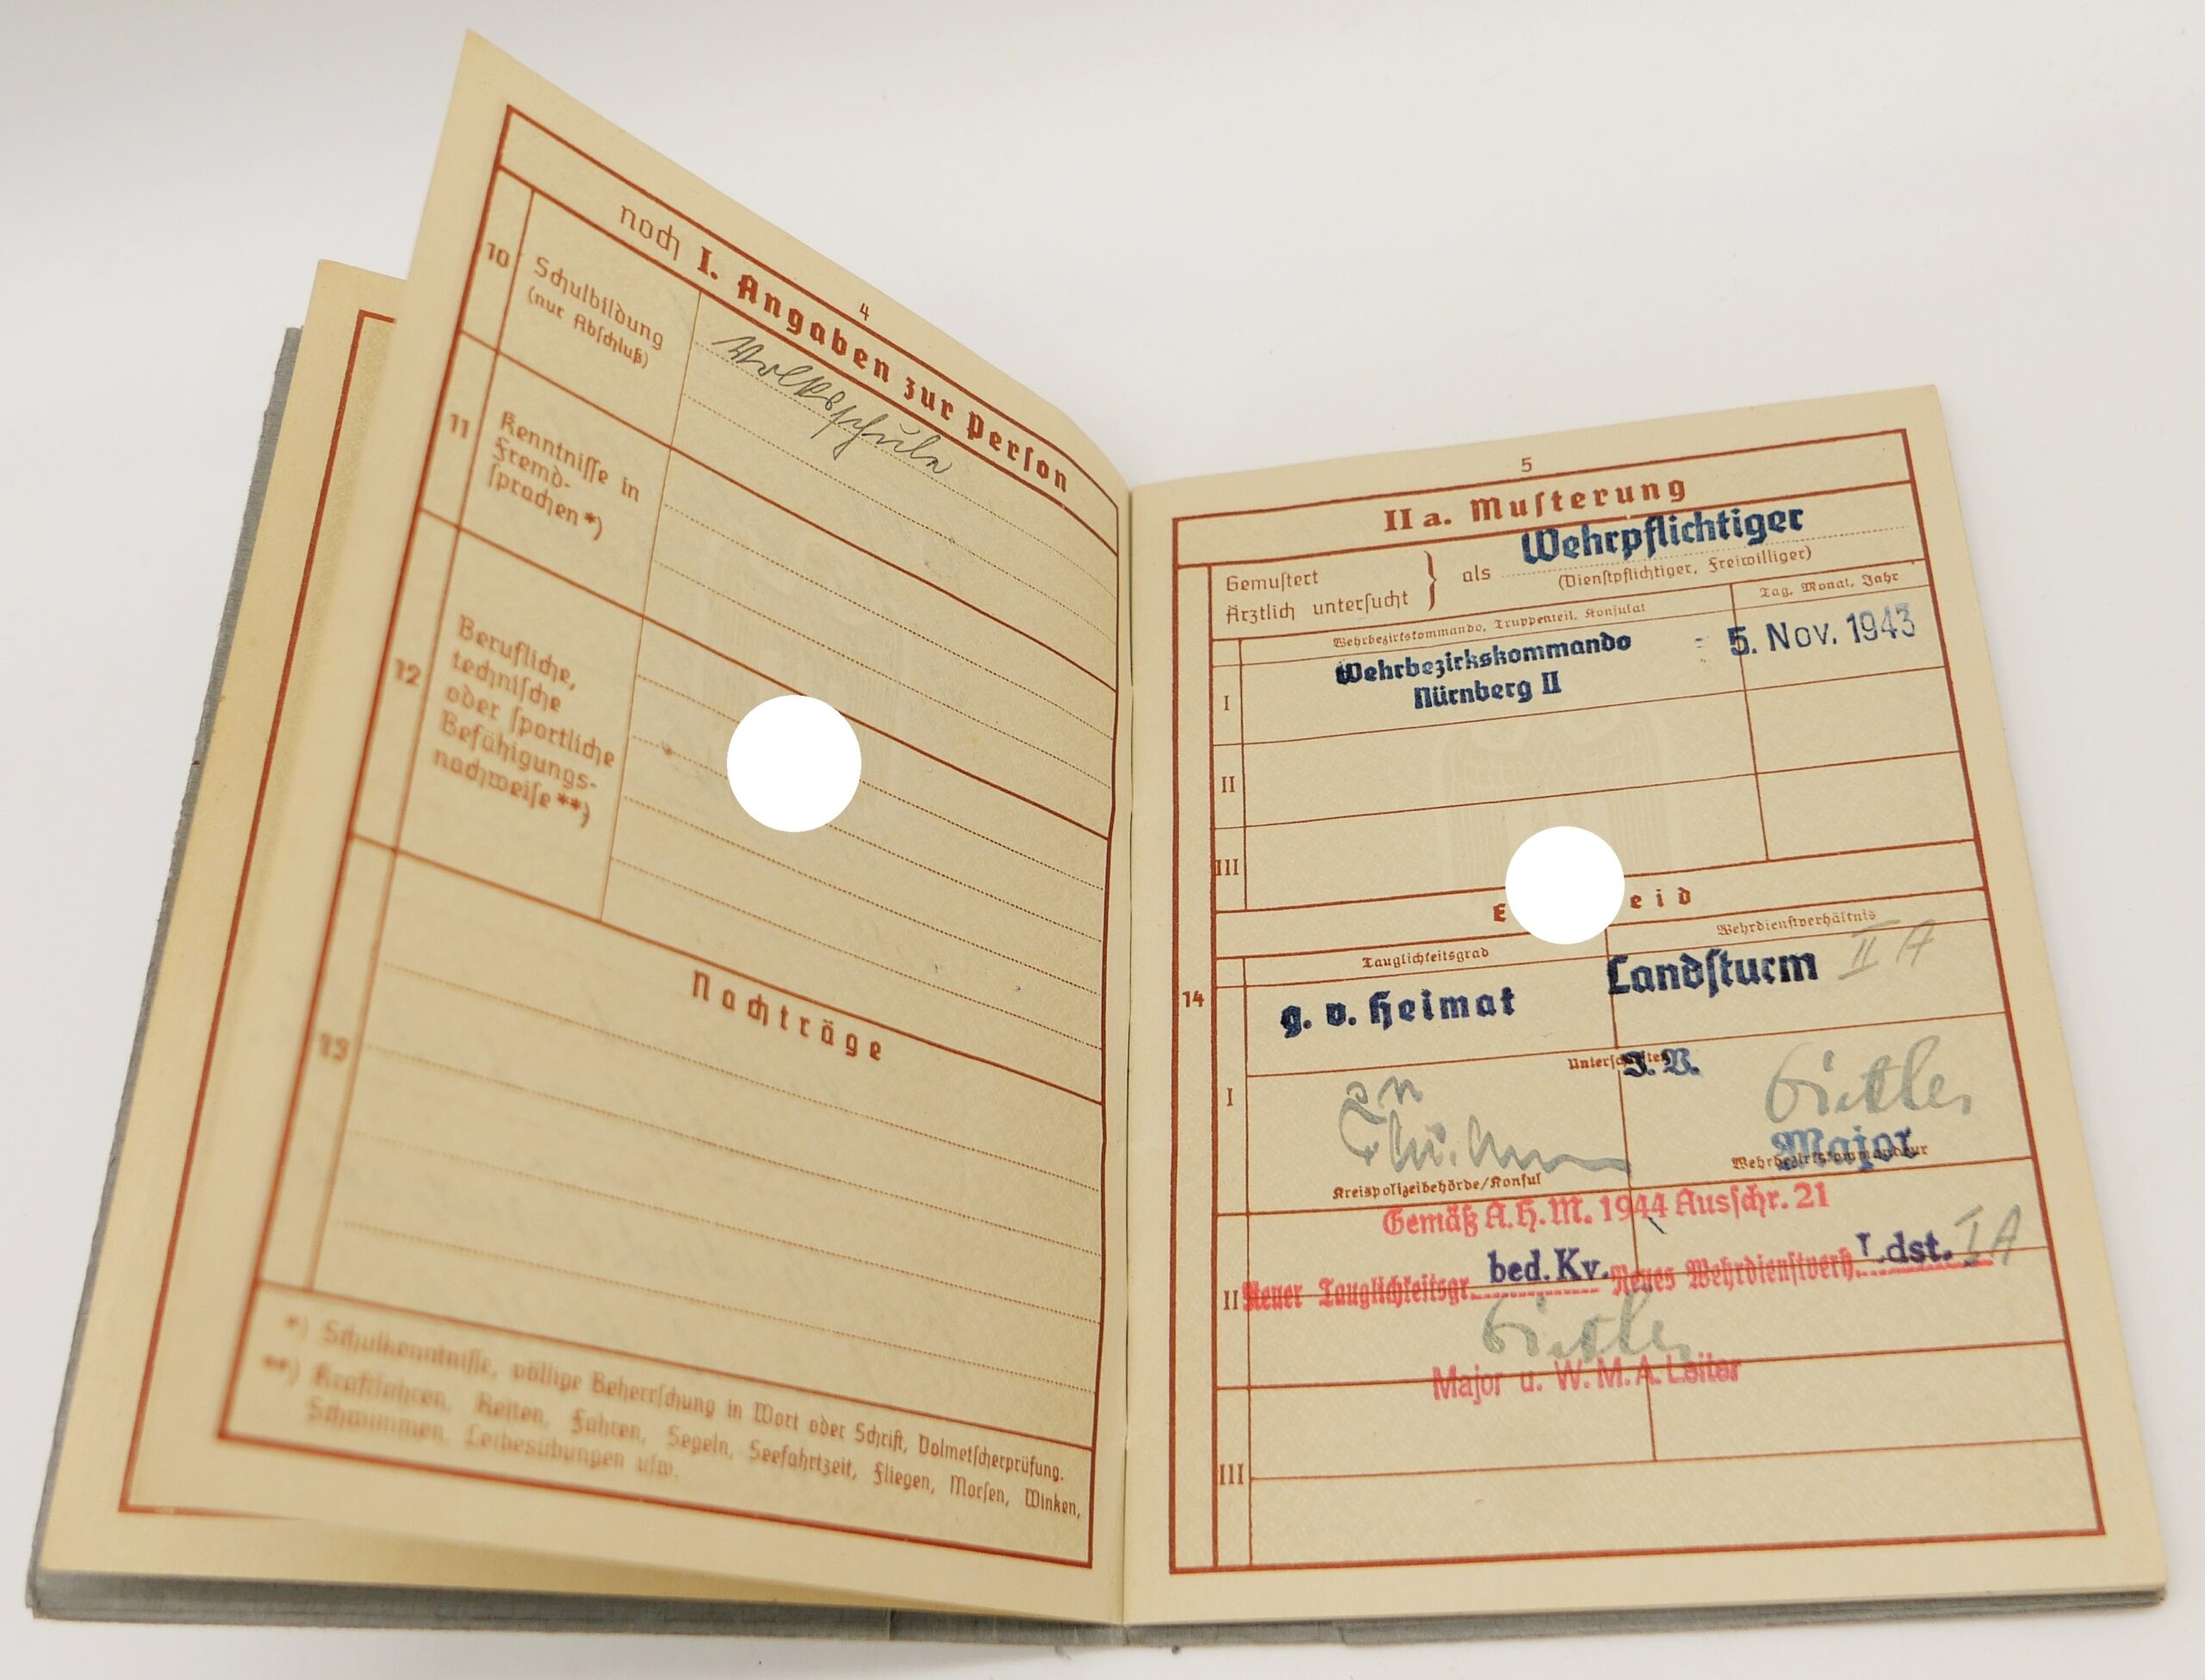 4
noch I. Angaben zur Person
10
Schulbildung
(nur Abschluß)
Volksschule
11
Kenntnisse in
Fremd-
sprachen *)
12
Berufliche,
technische
oder sportliche
Befähigungs-
nachweise **)
13
Nachträge
*) Schulkenntnisse, völlige Beherrschung in Wort oder Schrift, Dolmetscherprüfung.
**) Kraftfahren, Reiten, Fahren, Segeln, Seefahrtzeit, Fliegen, Morsen, Winken,
Schwimmen, Leibesübungen usw.
5
II a. Musterung
Gemustert
Ärztlich untersucht
} als Wehrpflichtiger
(Dienstpflichtiger, Freiwilliger)
Wehrbezirkskommando, Truppenteil, Konsulat
Tag, Monat, Jahr
I
Wehrbezirkskommando
Nürnberg II
5. Nov. 1943
II
III
E eid
14
Tauglichkeitsgrad
Wehrdienstverhältnis
g. v. Heimat
Landsturm II A
Unterschriften
I. V.
I
Major
Kreispolizeibehörde/Konsul
Wehrbezirkskommandeur
Gemäß A.H.M. 1944 Ausschr. 21
II
Neuer Tauglichkeitsgr. bed. Kv. Neues Wehrdienstverh. Ldst. I A
Major u. W.M.A. Leiter
III